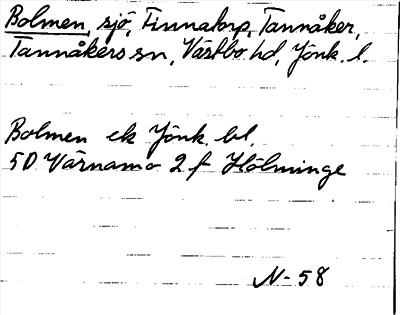 Bolmen, sjö, Finnatorp, Tannåker,
Tannåkers sn, Västbo hd, Jönk. l.
Bolmen ek Jönk. bl.
5D Värnamo 2 f Hölminge
N-58